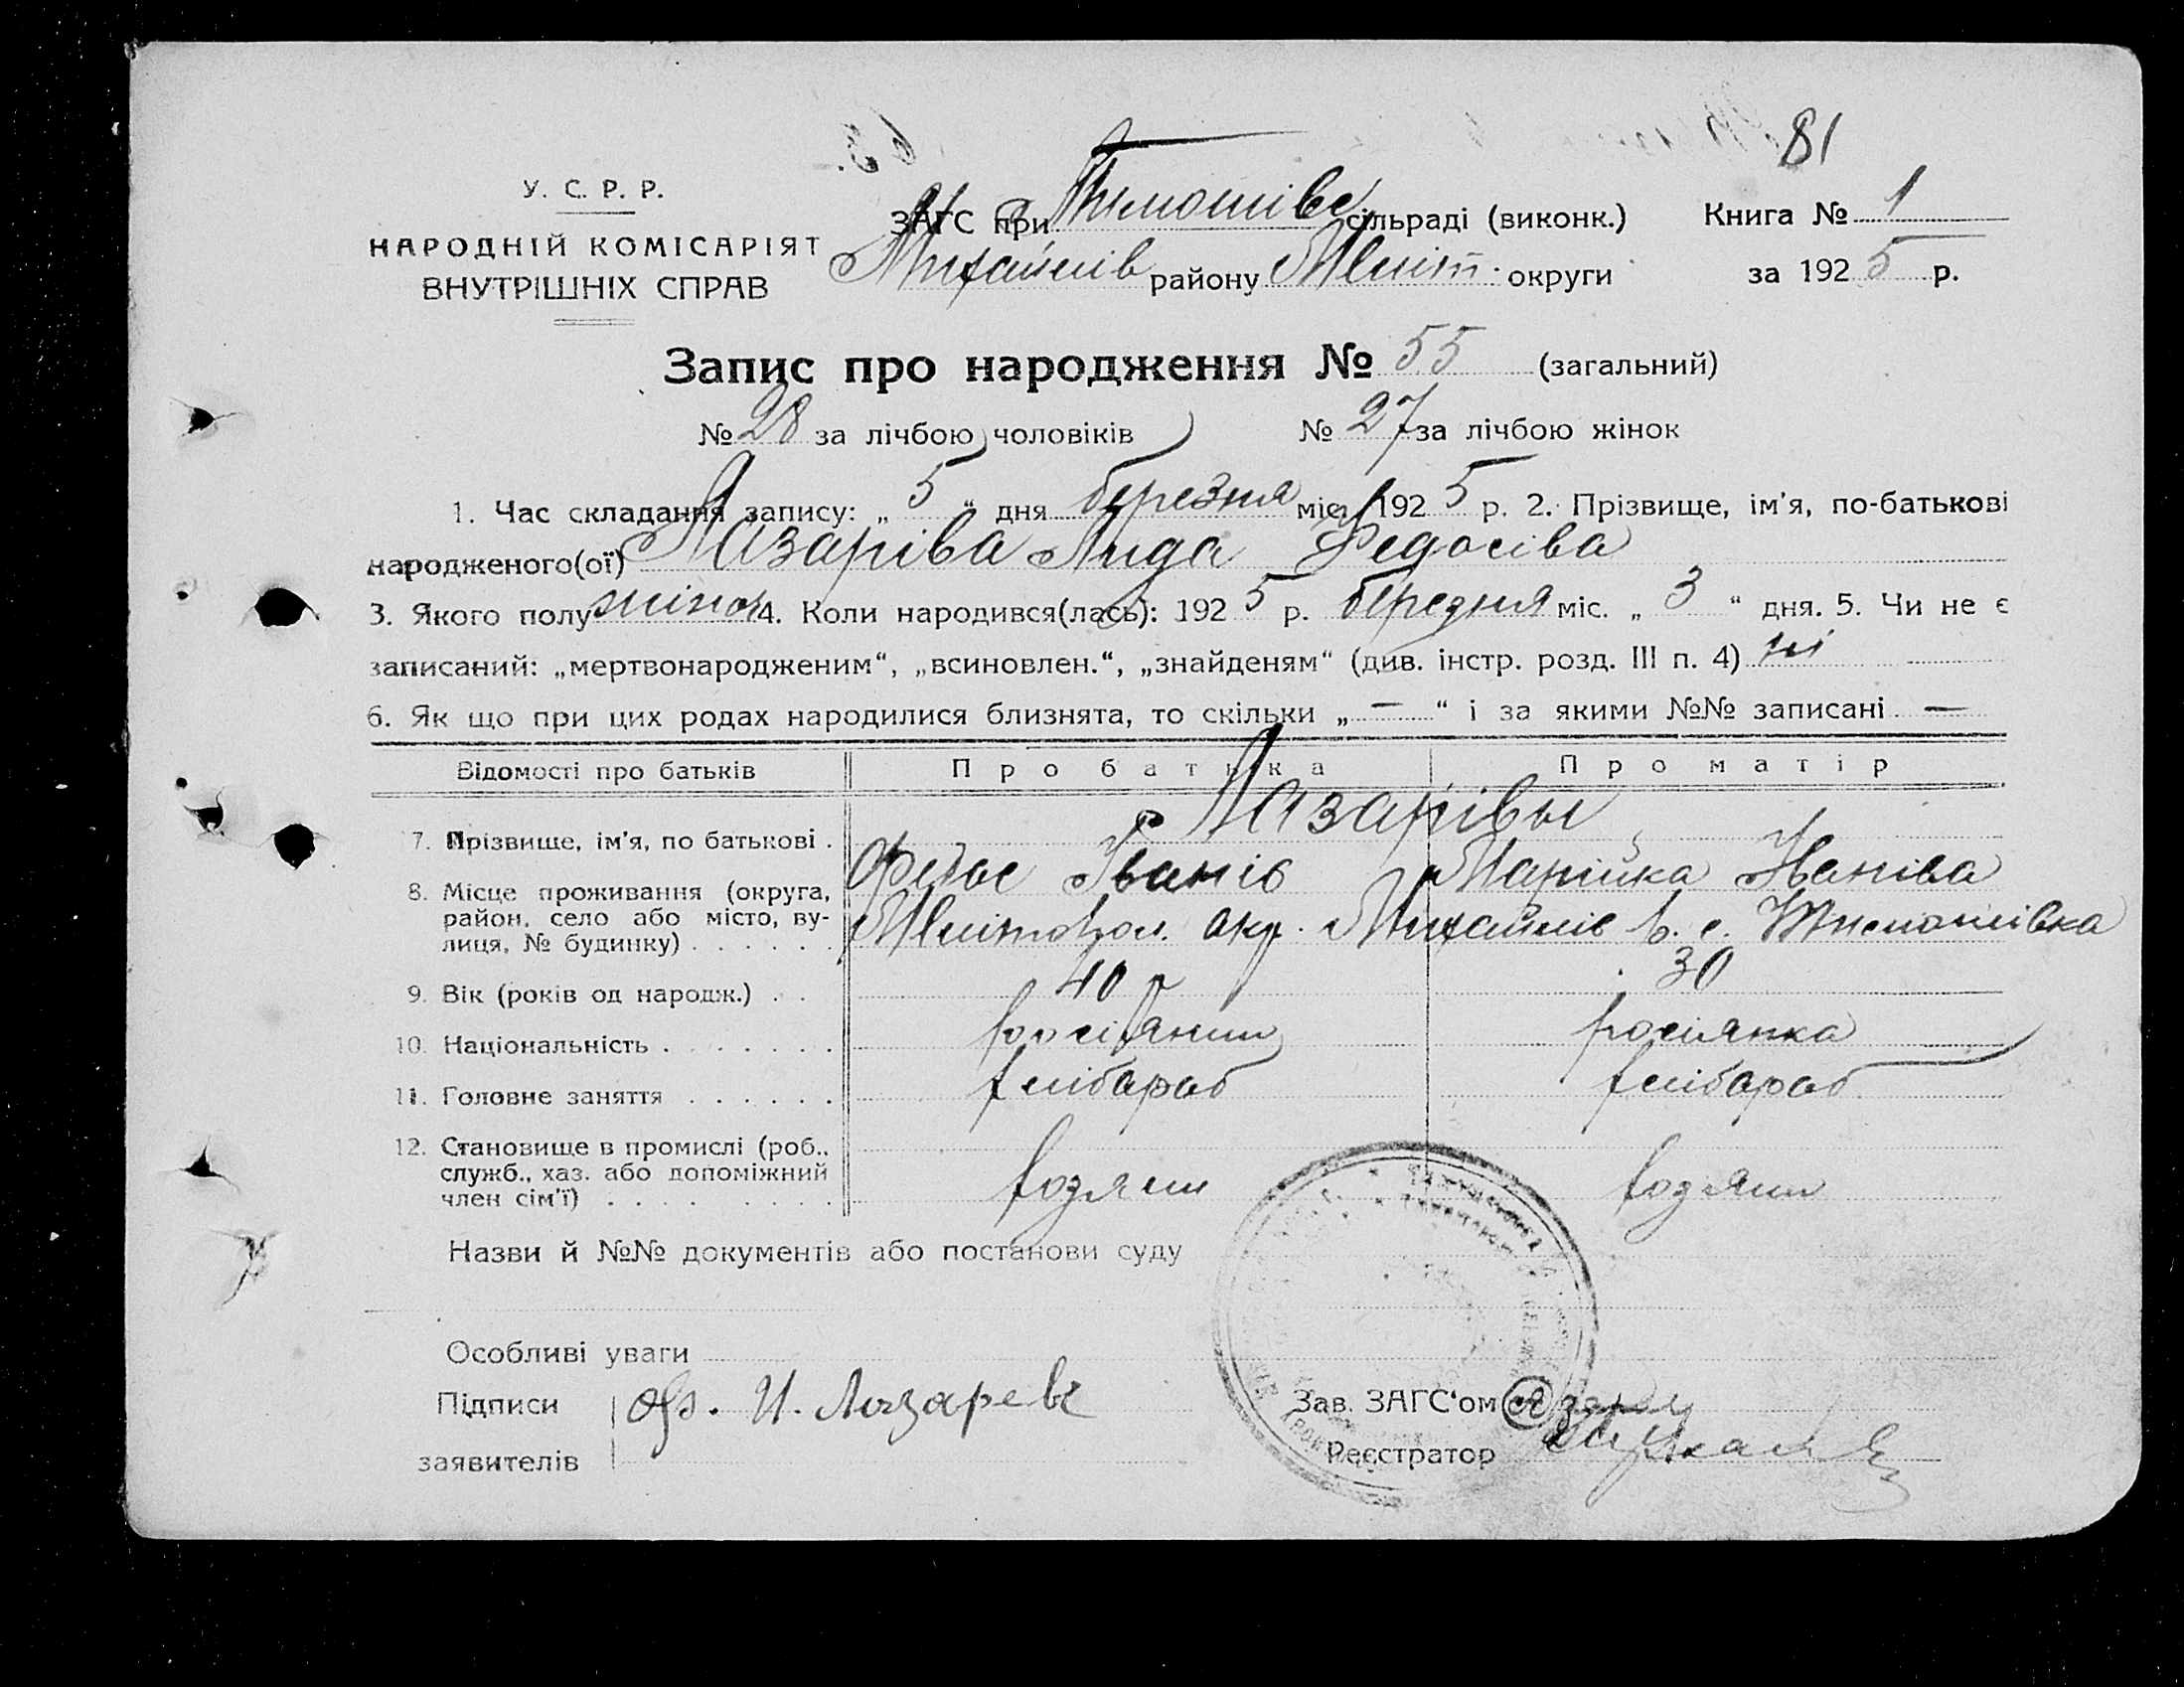 81
У. С. Р. Р.
НАРОДНІЙ КОМІСАРІЯТ
ВНУТРІШНІХ СПРАВ
ЗАГС при Тимошівс сільраді (виконк.) Книга № 1
Михайлів району Мліт. округи за 1925 р.
Запис про народження № 55 (загальний)
№ 28 за лічбою чоловіків № 27 за лічбою жінок
1. Час складання запису: „5“ дня березня міс. 1925 р. 2. Прізвище, ім'я, по-батькові
народженого(ої) Лазаріва Лида Федосіва
3. Якого полу жіноч 4. Коли народився(лась): 1925 р. березня міс. „3“ дня. 5. Чи не є
записаний: „мертвонародженим“, „всиновлен.“, „знайденям“ (див. інстр. розд. III п. 4) ні
6. Як що при цих родах народилися близнята, то скільки „—“ і за якими №№ записані —
Відомості про батьків Про батька Про матір
7. Прізвище, ім'я, по батькові . Лазарівы
Федос Іванів Марійка Іваніва
8. Місце проживання (округа, район, село або місто, вулиця, № будинку) . . . . . . Млітопол. окр. Михайлів р. с. Тимошівка
9. Вік (років од народж.) . . 40 р 30
10. Національність . . . . . . . росіянин росіянка
11. Головне заняття . . . . . . хлібороб хлібороб
12. Становище в промислі (роб., служб., хаз. або допоміжний член сім'ї) . . . . . . . . . хозяин хозяин
Назви й №№ документів або постанови суду
Особливі уваги
Підписи И. Лазаревъ Зав. ЗАГС'ом
заявителів Реєстратор